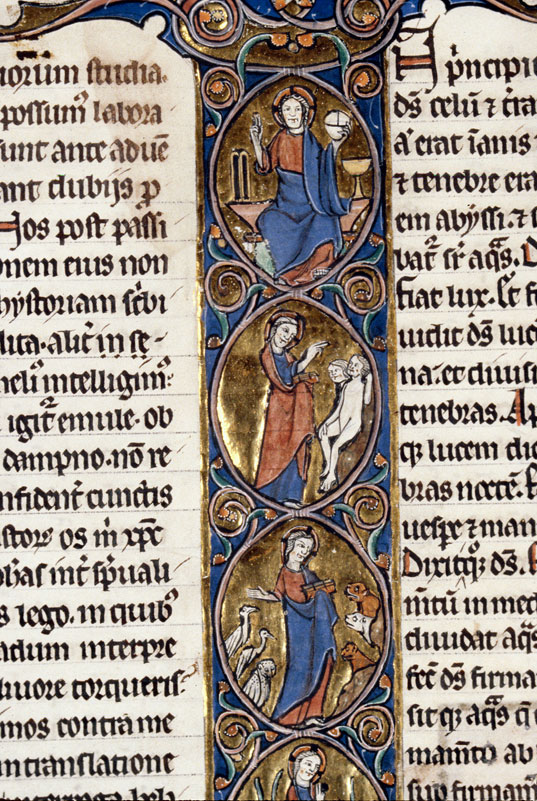 iorum studia.
possumꝰ labora
unt ante aduē
ant dubijs p̲
Nos post passi
onem eius non
hystoriam sc̄bi
alit̄ in se-
intelligimꝰ
igit̄ emule. ob
dampno. nō re
nfident̄ cunctis
os in xp̄e
int̄ sp̄uali
s lego. in quibꝰ
adum interpre
liuore torqueris.
mos contra me
in translatione
A p̄ncipi
dꝰ celū ⁊ t̄ra
a erat īanis
⁊ tenebre era
em abyssi. ⁊
bat̄ sr̄ aq̄s. D
fiat lux. Et f
uidit dꝰ luc
na. et diuisi
tenebras. Ap
qꝫ lucem die
bras noctē.
uesp̄e ⁊ man
Dixitqꝫ dꝰ.
m̄tū in med
diuidat aq̄s
fec̄ dꝰ firma
sitqꝫ aq̄s q̄
mam̄to ab
suo firmam